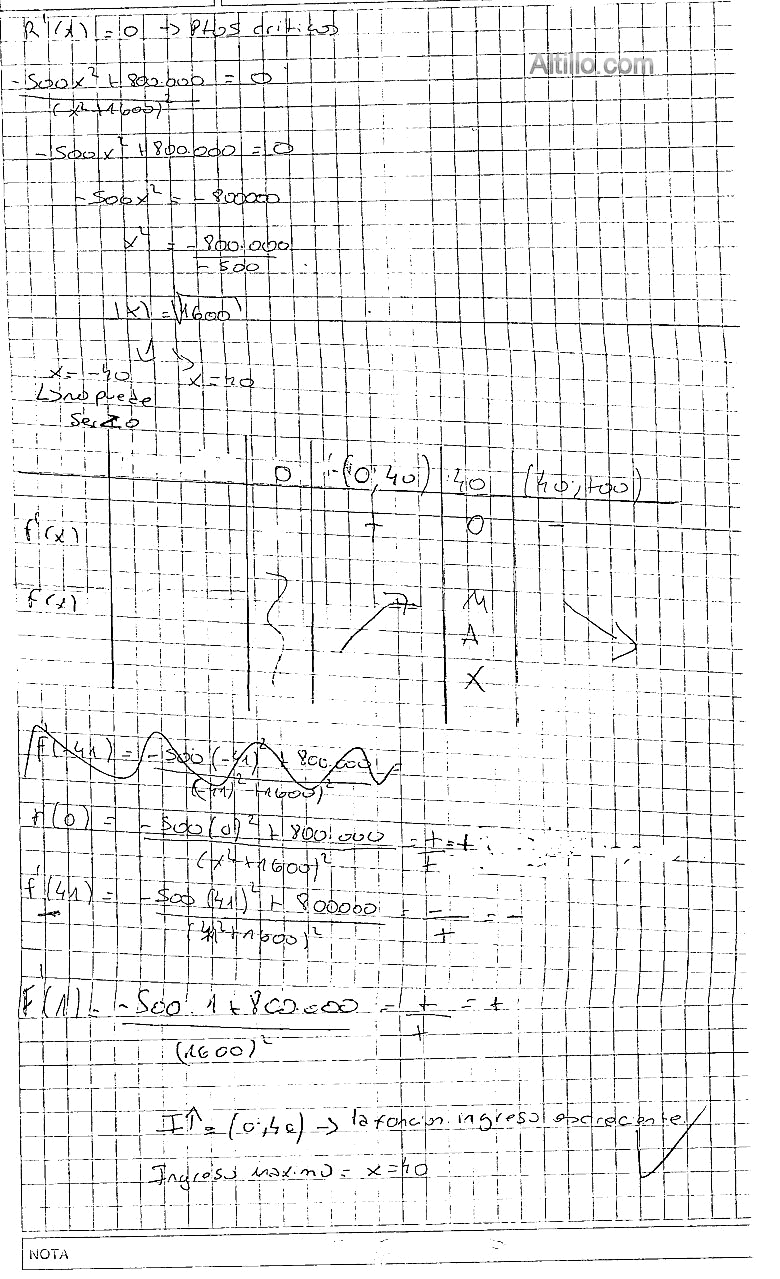 R'(x) = 0 → Ptos criticos
Altillo.com
-500x² + 800.000 = 0
(x² + 1600)²
-500x² + 800.000 = 0
-500x² = -800000
x² = -800.000
-500
|x| = √1600
x = -40 x = 40
↳ no puede
ser < 0
0 (0,40) 40 (40,+00)
f'(x) + 0 -
f(x) M
A
X
f'(-41) = -500(-41)² + 800.000 =
(-41)² + 1600)²
f'(0) = -500(0)² + 800.000 = + = +
(x² + 1600)² +
f'(41) = -500(41)² + 800000 = - = -
(41² + 1600)² +
F'(1) = -500.1 + 800.000 = + = +
(1600)² +
I↑ = (0,40) → la funcion ingreso es creciente
Ingreso maximo = x = 40
NOTA